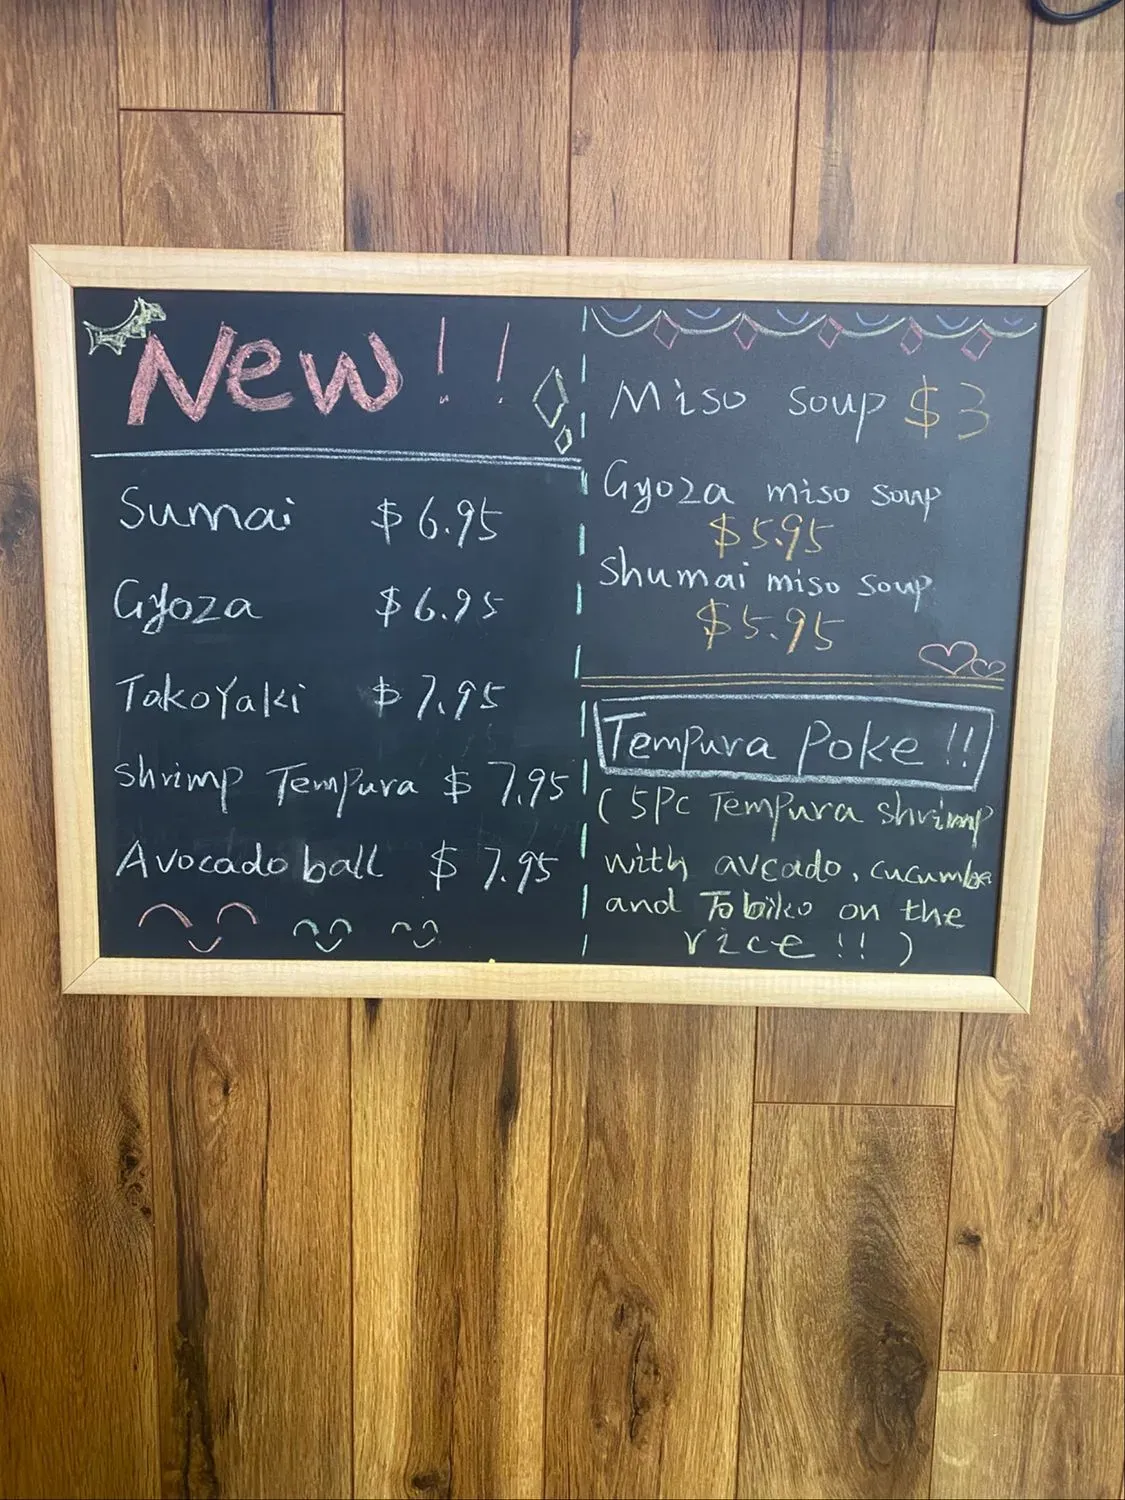 New!!
Sumai $6.95
Gyoza $6.95
TakoYaki $7.95
shrimp Tempura $7.95
Avocado ball $7.95
Miso soup $3
Gyoza miso soup
$5.95
Shumai miso soup
$5.95
Tempura Poke!!
(5Pc Tempura shrimp
with avcado, cucumbe
and Tobiko on the
rice!!)